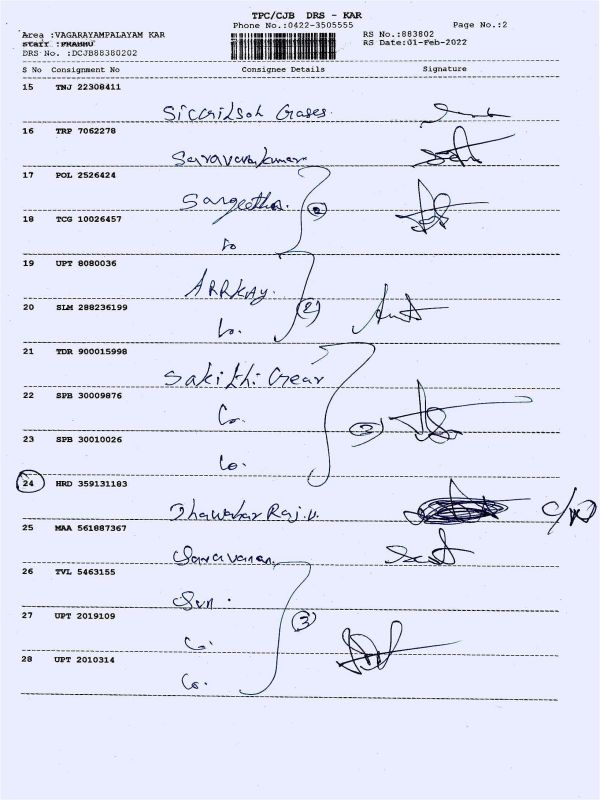 TPC/CJB DRS - KAR
Phone No.:0422-3505555 Page No.:2
Area :VAGARAYAMPALAYAM KAR RS No.:883802
Staff :PRABHU RS Date:01-Feb-2022
DRS No. :DCJB88380202
S No Consignment No Consignee Details Signature
15 TNJ 22308411
Gases
16 TRP 7062278
Saravanakumar
17 POL 2526424
Sangeetha
18 TCG 10026457
19 UPT 8080036
ARRKAY
20 SLM 288236199
(2)
21 TDR 900015998
Sakithi Gear
22 SPB 30009876
Co.
23 SPB 30010026
Co.
24 HRD 359131183
Raj.
25 MAA 561887367
Saravanan
26 TVL 5463155
Sun.
27 UPT 2019109
Co. 3
28 UPT 2010314
Co.